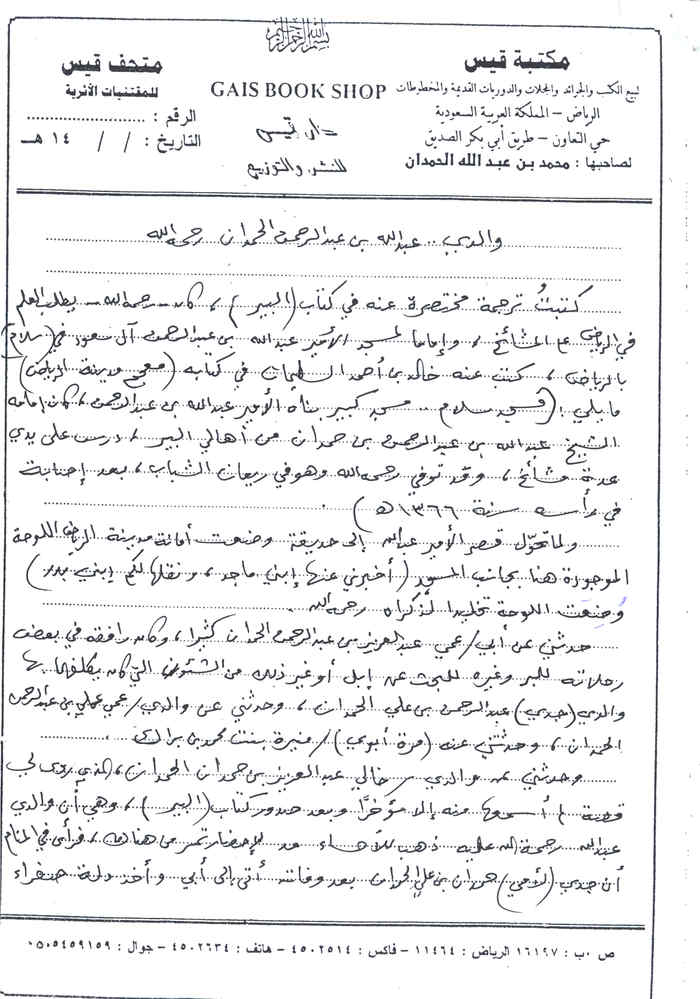 بسم الله الرحمن الرحيم
مكتبة قيس
لبيع الكتب والجرائد والمجلات والدوريات القديمة والمخطوطات
الرياض - المملكة العربية السعودية
حي التعاون - طريق أبي بكر الصديق
لصاحبها : محمد بن عبد الله الحمدان
GAIS BOOK SHOP
دار قيس
للنشر والتوزيع
متحف قيس
للمقتنيات الأثرية
الرقم :
التاريخ : / / ١٤ هـ
والدي .. عبدالله بن عبدالرحمن الحمدان رحمه الله
كتبتُ ترجمة مختصرة عنه في كتاب (البير) ، كان - رحمه الله - يطلب العلم
في الرياض على المشائخ ، وإماما لمسجد الأمير عبدالله بن عبدالرحمن آل سعود في (سلام)
بالرياض ، كتب عنه خالد بن أحمد السليمان في كتابه (معجم مدينة الرياض)
ما يلي : (مسجد سلام .. مسجد كبير بناه الأمير عبدالله بن عبدالرحمن ، كان إمامه
الشيخ عبدالله بن عبدالرحمن بن حمدان من أهالي البير ، درس على يدي
عدة مشائخ ، وقد توفي رحمه الله وهو في ريعان الشباب ، بعد إصابة
في رأسه سنة ١٣٦٦ هـ) .
ولما تحوّل قصر الأمير عبدالله إلى حديقة وضعت أمانة مدينة الرياض اللوحة
الموجودة هنا بجانب المسجد (أخبرني عنها إبني ماجد ، ونقلها لكم إبني بدر)
وُضِعَت اللوحة تخليدا لذكراه رحمه الله .
حدثني عن أبي / عمي عبدالعزيز بن عبدالرحمن الحمدان كثيرا ، وكان رافقه في بعض
رحلاته للبر وغيره للبحث عن إبل أو غير ذلك من الشئون التي كان يكلفهما بها
والدي (جدي) عبدالرحمن بن علي الحمدان ، وحدثني عن والدي / عمي علي بن عبدالرحمن
الحمدان ، وحدثتني عنه (مرة أبوي) / منيرة بنت محمد بن براك .
وحدثني عن والدي / خالي عبدالعزيز بن حمدان الحمدان ، الذي روى لي
قصة لم أسمعها منه إلا مؤخرًا وبعد صدور كتاب (البير) ، وهي أن والدي
عبدالله رحمة الله عليه ذهب للأحساء لإحضار تمر من هناك ، فرأى في المنام
أن جدي (لأمي) حمدان بن علي الحمدان بعد وفاته أتى إلى أبي وأخذ دلة صفراء
ص ٠ب : ١٦١٩٧ الرياض : ١١٤٦٤ - فاكس : ٤٥٠٢٥١٤ - هاتف : ٤٥٠٢٦٣٤ - جوال : ٠٥٠٥٤٥٩١٥٩